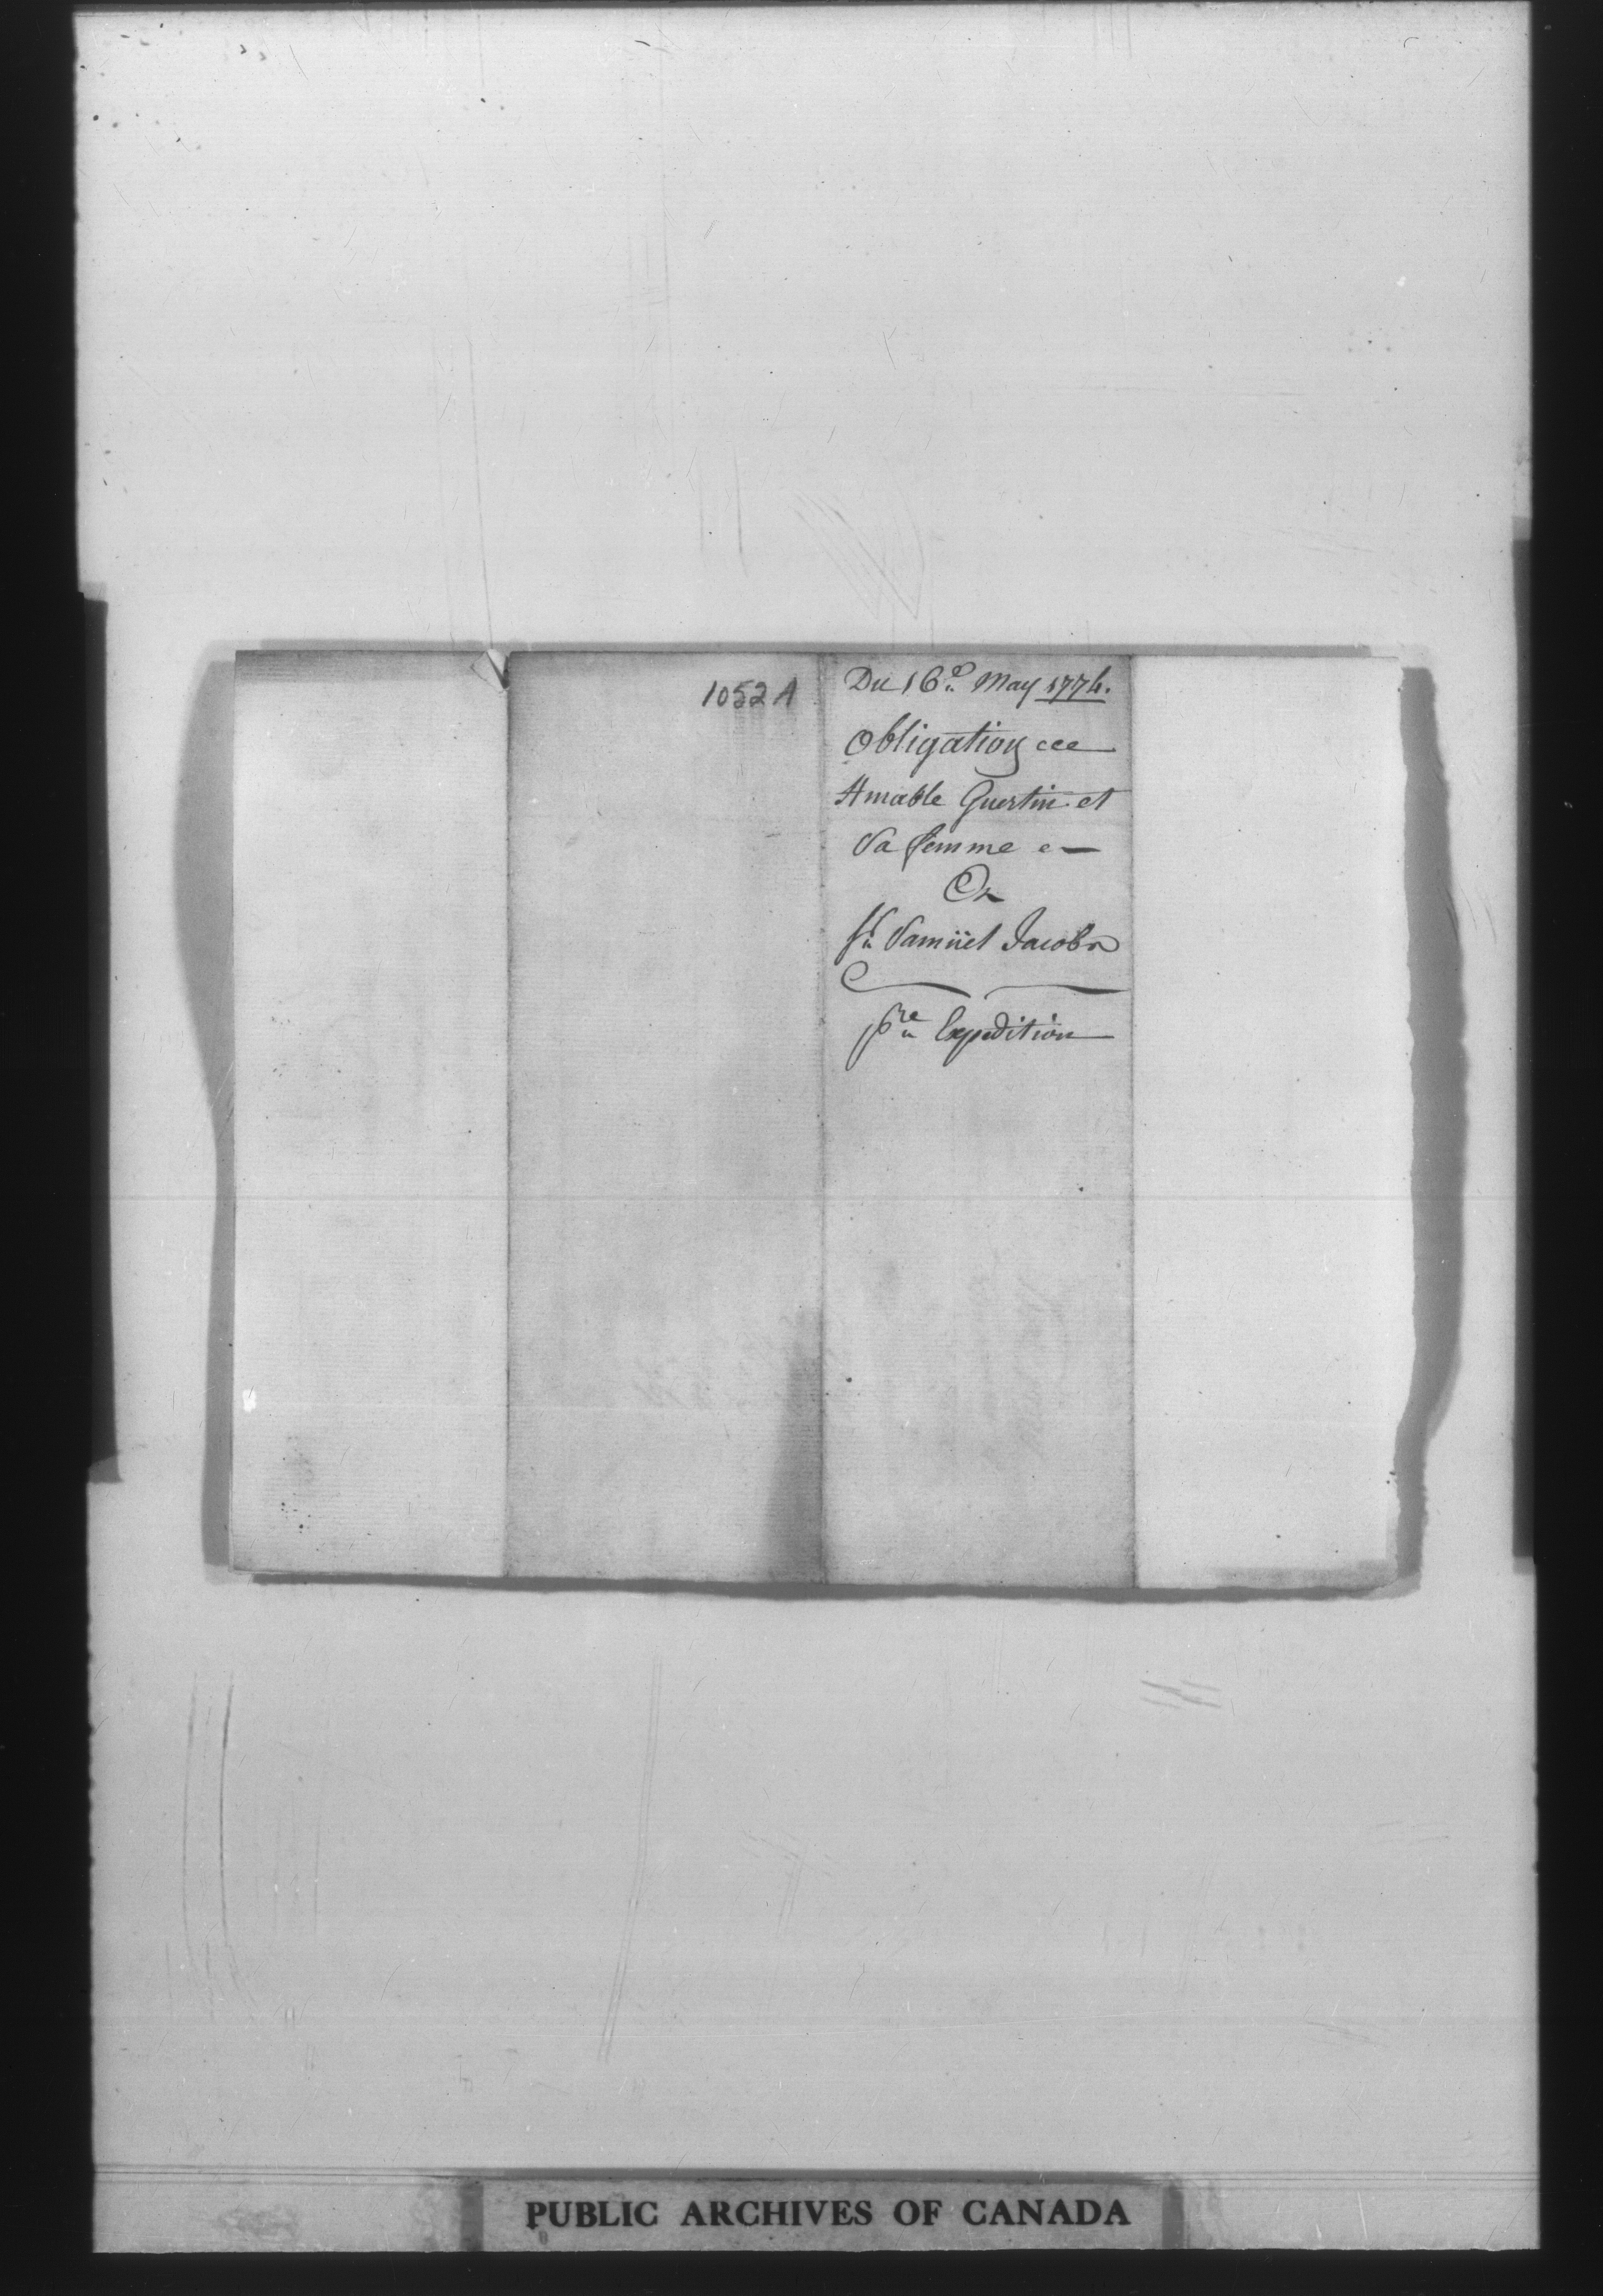 1052A
Du 16e May 1774.
Obligation
Amable Guertin et
Sa femme
Sr Samüel Jacobs
pre Expedition
PUBLIC ARCHIVES OF CANADA